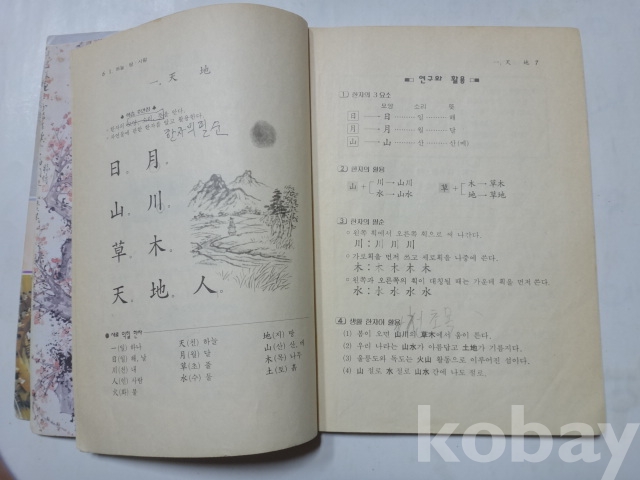 一、天 地
한자의 필순
日 月
山 川
草 木
天 地 人
새로 익힐 한자
一(일) 하나 天(천) 하늘 地(지) 땅
日(일) 해, 날 月(월) 달 山(산) 산, 메
川(천) 내 草(초) 풀 木(목) 나무
人(인) 사람 水(수) 물 土(토) 흙
火(화) 불
一、天 地 7
연구와 활용
1 한자의 3 요소
모양 소리 뜻
日 日 일 해
月 月 월 달
山 山 산 산(메)
2 한자의 활용
山 + 川 → 山川 草 + 木 → 草木
水 → 山水 地 → 草地
3 한자의 필순
왼쪽 획에서 오른쪽 획으로 써 나간다.
川:
가로획을 먼저 쓰고 세로획을 나중에 쓴다.
木:
왼쪽과 오른쪽의 획이 대칭될 때는 가운데 획을 먼저 쓴다.
水:
4 생활 한자의 활용
(1) 봄이 오면 山川의 草木에서 움이 튼다.
(2) 우리 나라는 山水가 아름답고 土地가 기름지다.
(3) 울릉도와 독도는 火山 활동으로 이루어진 섬이다.
(4) 山 절로 水 절로 山水 간에 나도 절로.
kobay